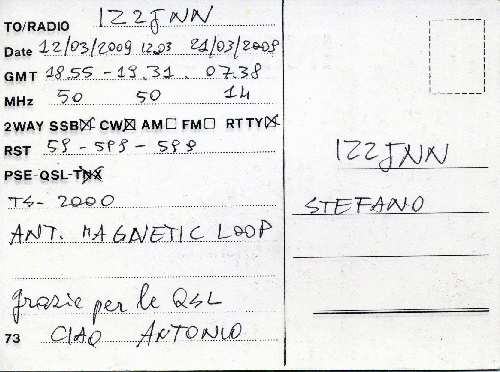 TO/RADIO IZ2JNN
Date 12/03/2009 12.03 21/03/2009
GMT 18.55 - 19.31. 07.38
MHz 50 50 14
2WAY SSB☒ CW☒ AM☐ FM☐ RTTY☒
RST 59 - 599 - 599
PSE-QSL-TNX
TS-2000
ANT. MAGNETIC LOOP
grazie per le QSL
73 CIAO ANTONIO
IZ2JNN
STEFANO